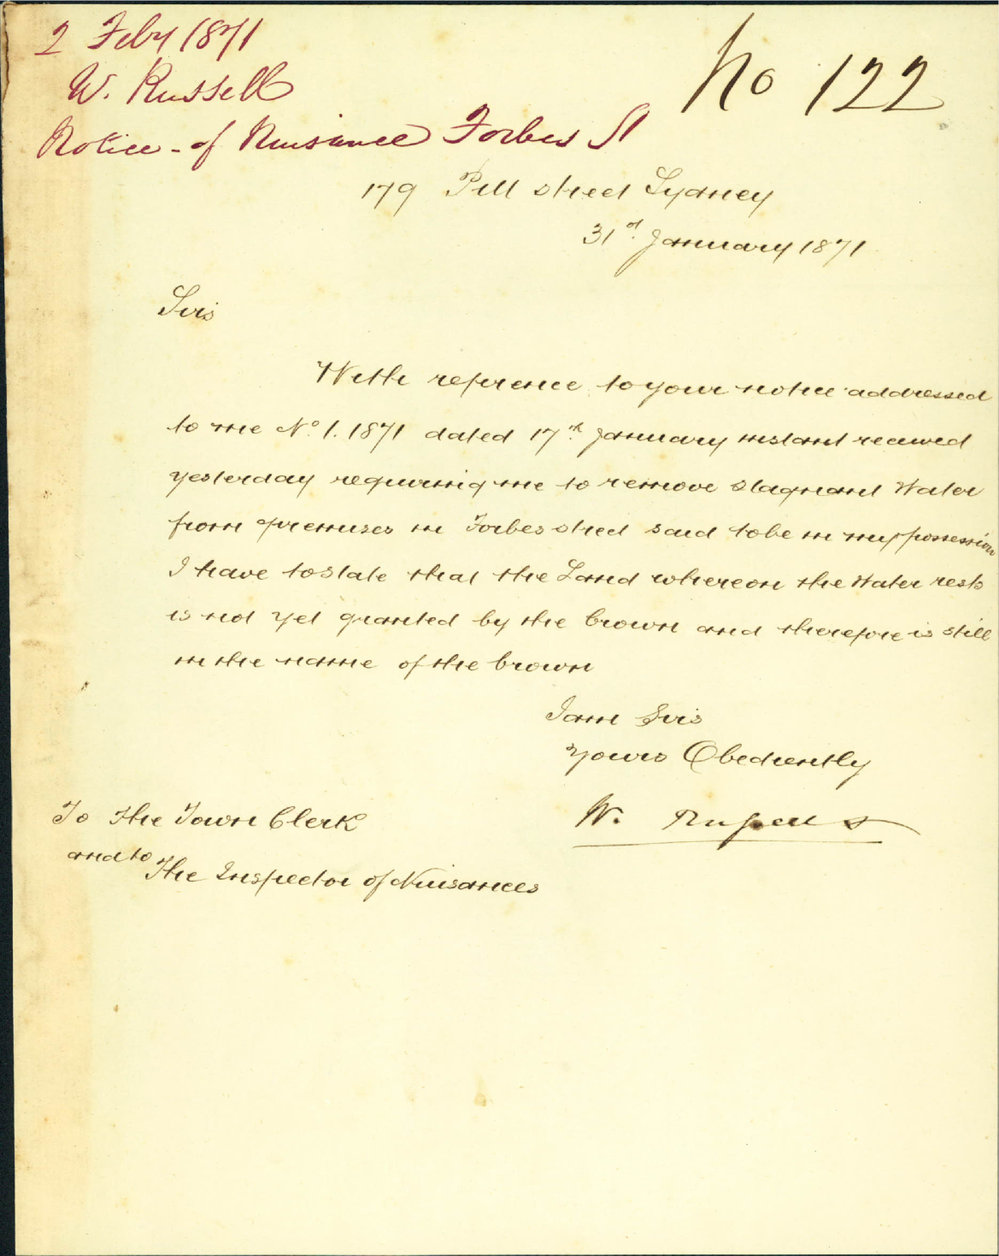 2 Feby 1871
No 122
W. Russell
Notice of Nuisance Forbes St
179 Pitt street Sydney
31st January 1871
Sirs
With reference to your notice addressed
to me No. 1. 1871 dated 17th January instant received
yesterday requiring me to remove stagnant Water
from premises in Forbes street said to be in my possession
I have to state that the Land whereon the Water rests
is not yet granted by the Crown and therefore is still
in the name of the Crown
I am Sirs
Yours Obediently
W. Russell
To The Town Clerk
and to
The Inspector of Nuisances